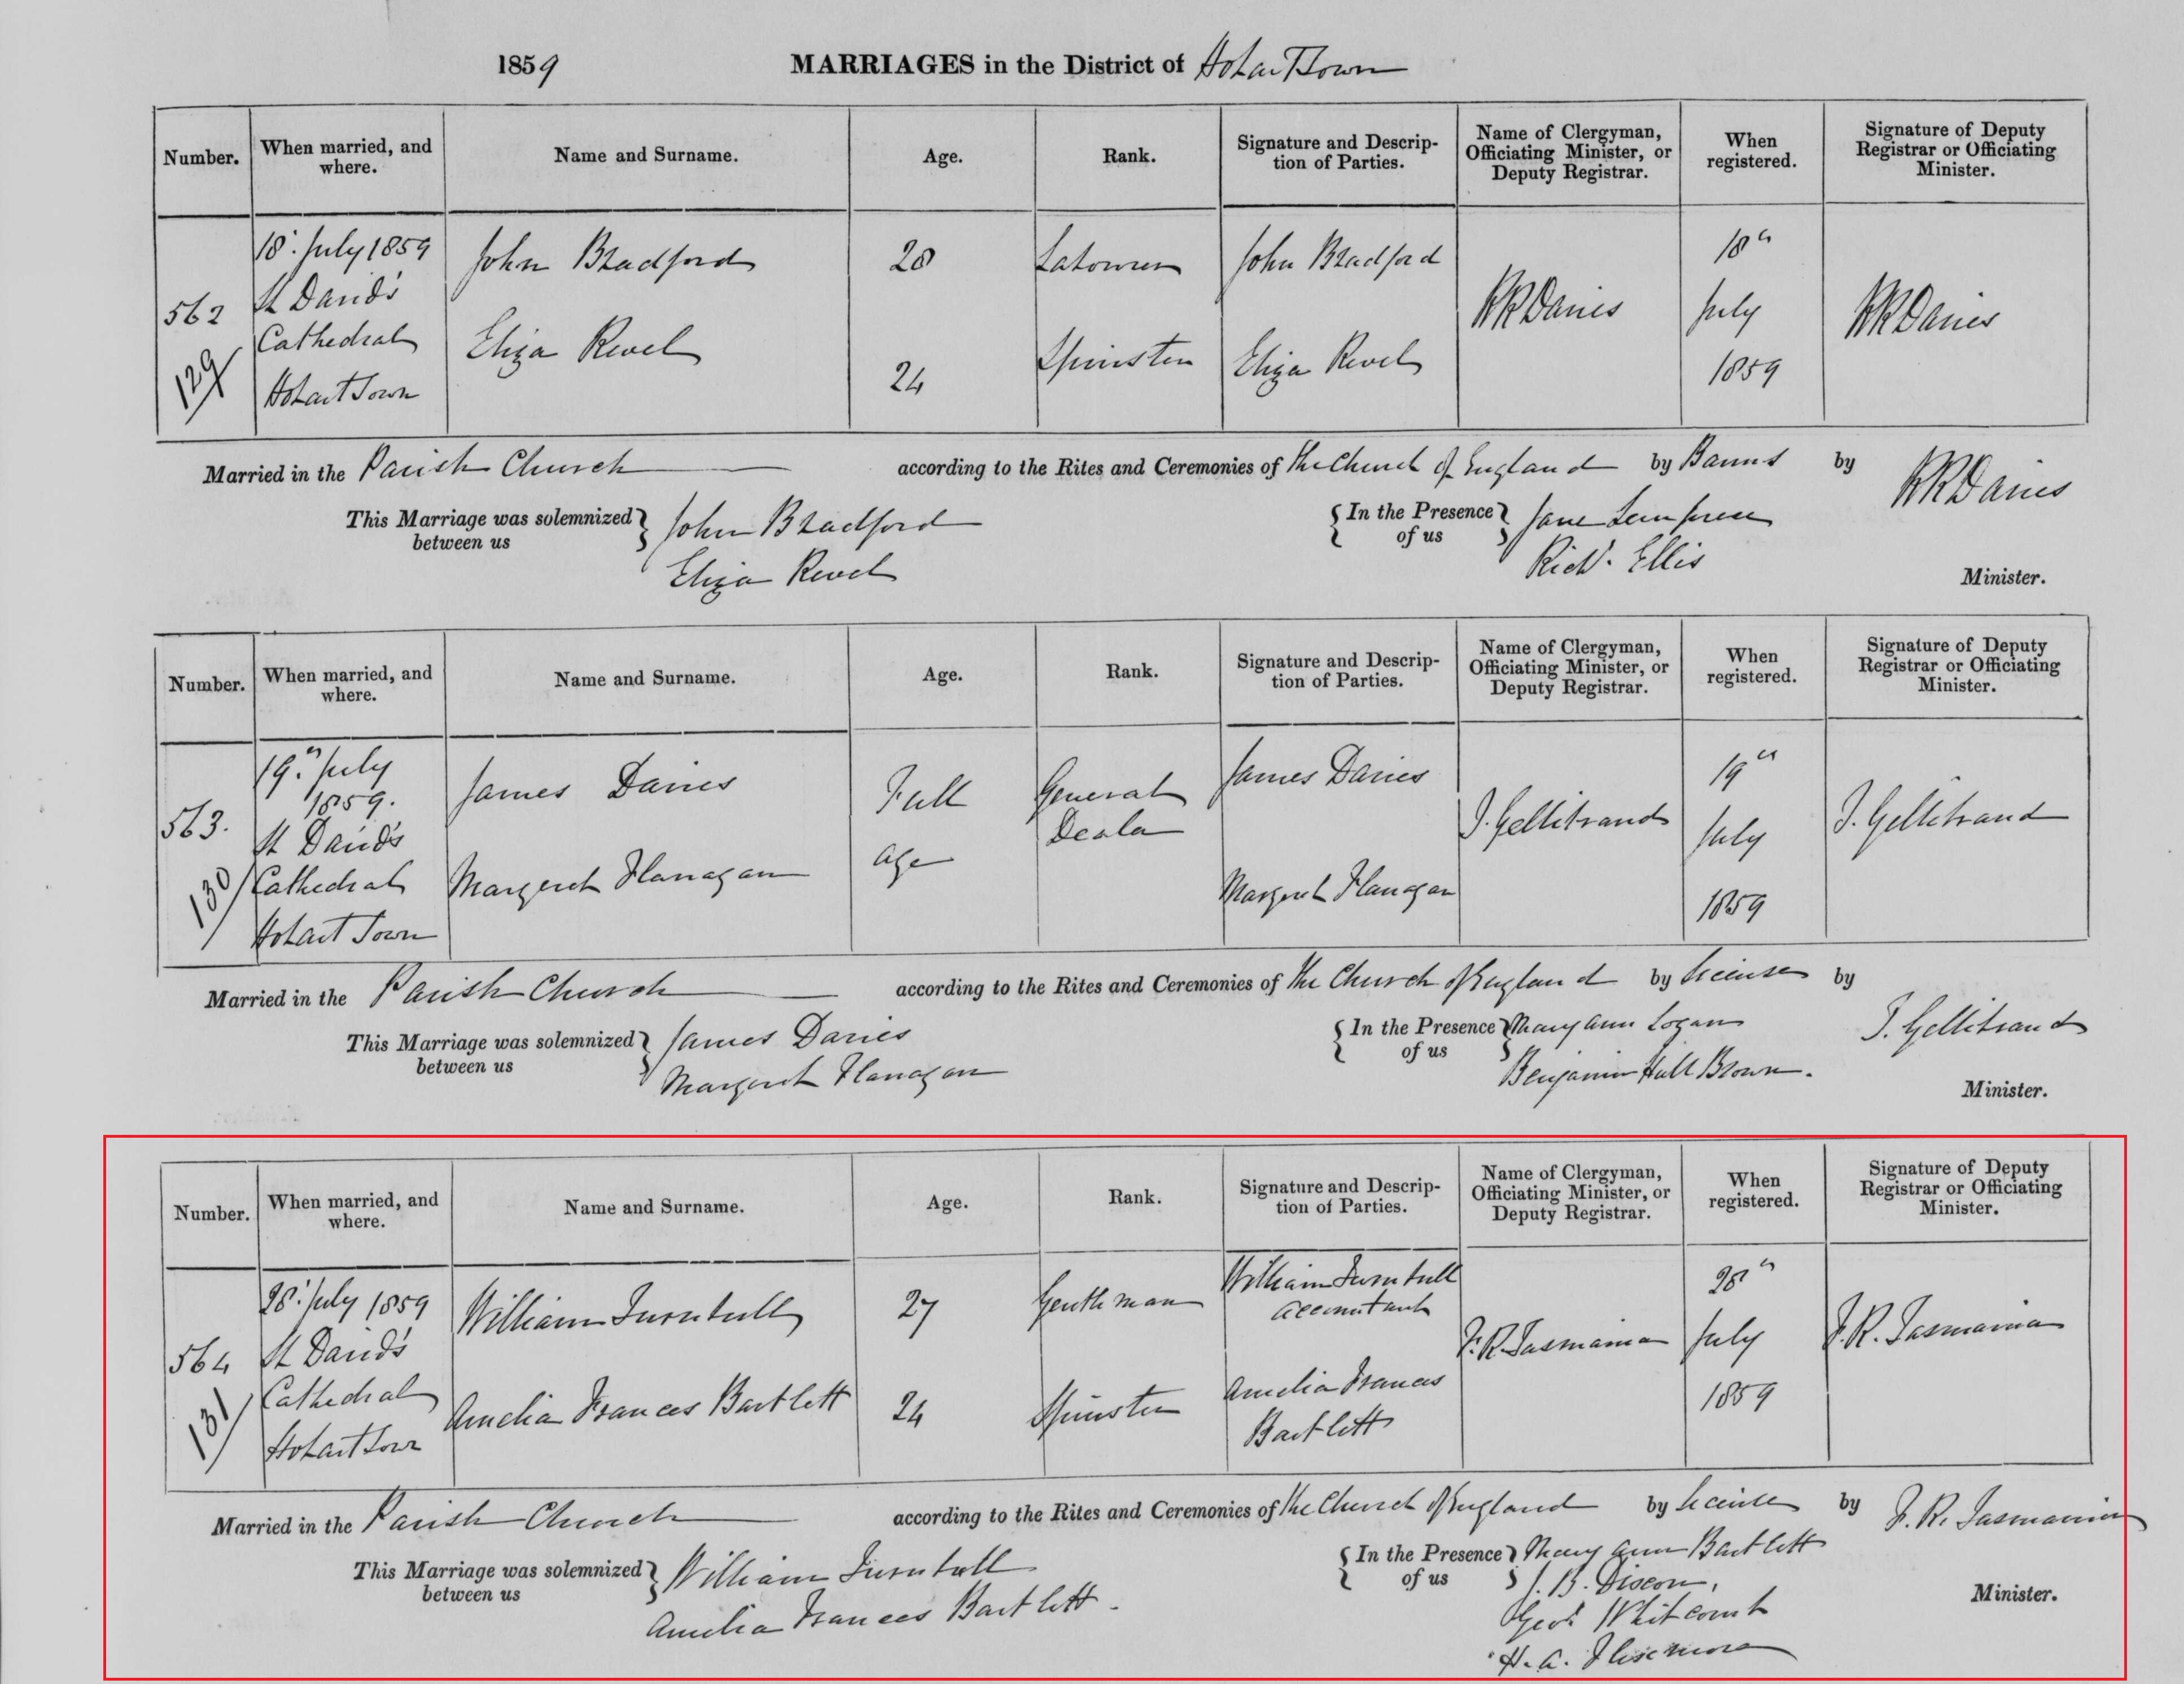 1859 MARRIAGES in the District of Hobart Town
Number. When married, and where. Name and Surname. Age. Rank. Signature and Description of Parties. Name of Clergyman, Officiating Minister, or Deputy Registrar. When registered. Signature of Deputy Registrar or Officiating Minister.
562
129
18. July 1859
St David's
Cathedral
Hobart Town
John Bradford
Eliza Revel
28
24
Labourer
Spinster
John Bradford
Eliza Revel
RRDavies
18th
July
1859
RRDavies
Married in the Parish Church according to the Rites and Ceremonies of the Church of England by Banns by RRDavies
This Marriage was solemnized between us John Bradford
Eliza Revel
In the Presence of us Jane
Richd. Ellis
Minister.
Number. When married, and where. Name and Surname. Age. Rank. Signature and Description of Parties. Name of Clergyman, Officiating Minister, or Deputy Registrar. When registered. Signature of Deputy Registrar or Officiating Minister.
563.
130
19th July
1859.
St David's
Cathedral
Hobart Town
James Davies
Margaret Flanagan
Full
age
General
Dealer
James Davies
Margaret Flanagan
J. Gellibrand
19th
July
1859
J. Gellibrand
Married in the Parish Church according to the Rites and Ceremonies of the Church of England by License by J. Gellibrand
This Marriage was solemnized between us James Davies
Margaret Flanagan
In the Presence of us Mary Ann Logan
Benjamin Hall Brown.
Minister.
Number. When married, and where. Name and Surname. Age. Rank. Signature and Description of Parties. Name of Clergyman, Officiating Minister, or Deputy Registrar. When registered. Signature of Deputy Registrar or Officiating Minister.
564
131
28. July 1859
St David's
Cathedral
Hobart Town
William Turnbull
Amelia Frances Bartlett
27
24
Gentleman
Spinster
William Turnbull
accountant
Amelia Frances
Bartlett
F. R. Tasmania
28th
July
1859
F. R. Tasmania
Married in the Parish Church according to the Rites and Ceremonies of the Church of England by License by F. R. Tasmania
This Marriage was solemnized between us William Turnbull
Amelia Frances Bartlett.
In the Presence of us Mary Ann Bartlett
J. B.
Geo. Whitcomb
H. A.
Minister.